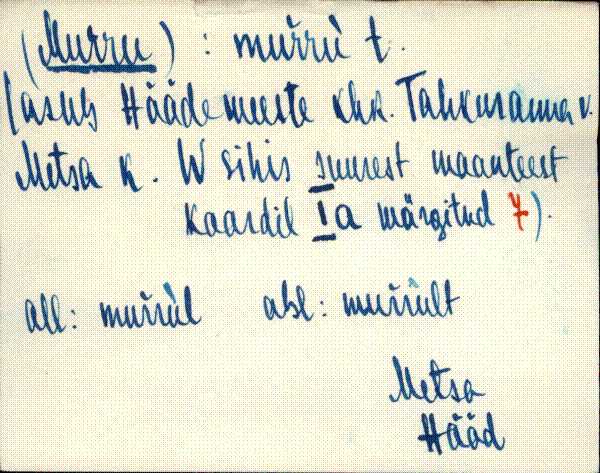 (Murru) : mur̆rù t.
(asub Häädemeeste khk. Tahkuranna v.
Metsa k. W sihis suurest maanteest
kaardil Ia märgitud 7).
all: mur̆rùl abl: mur̆rùlt
Metsa
Hääd